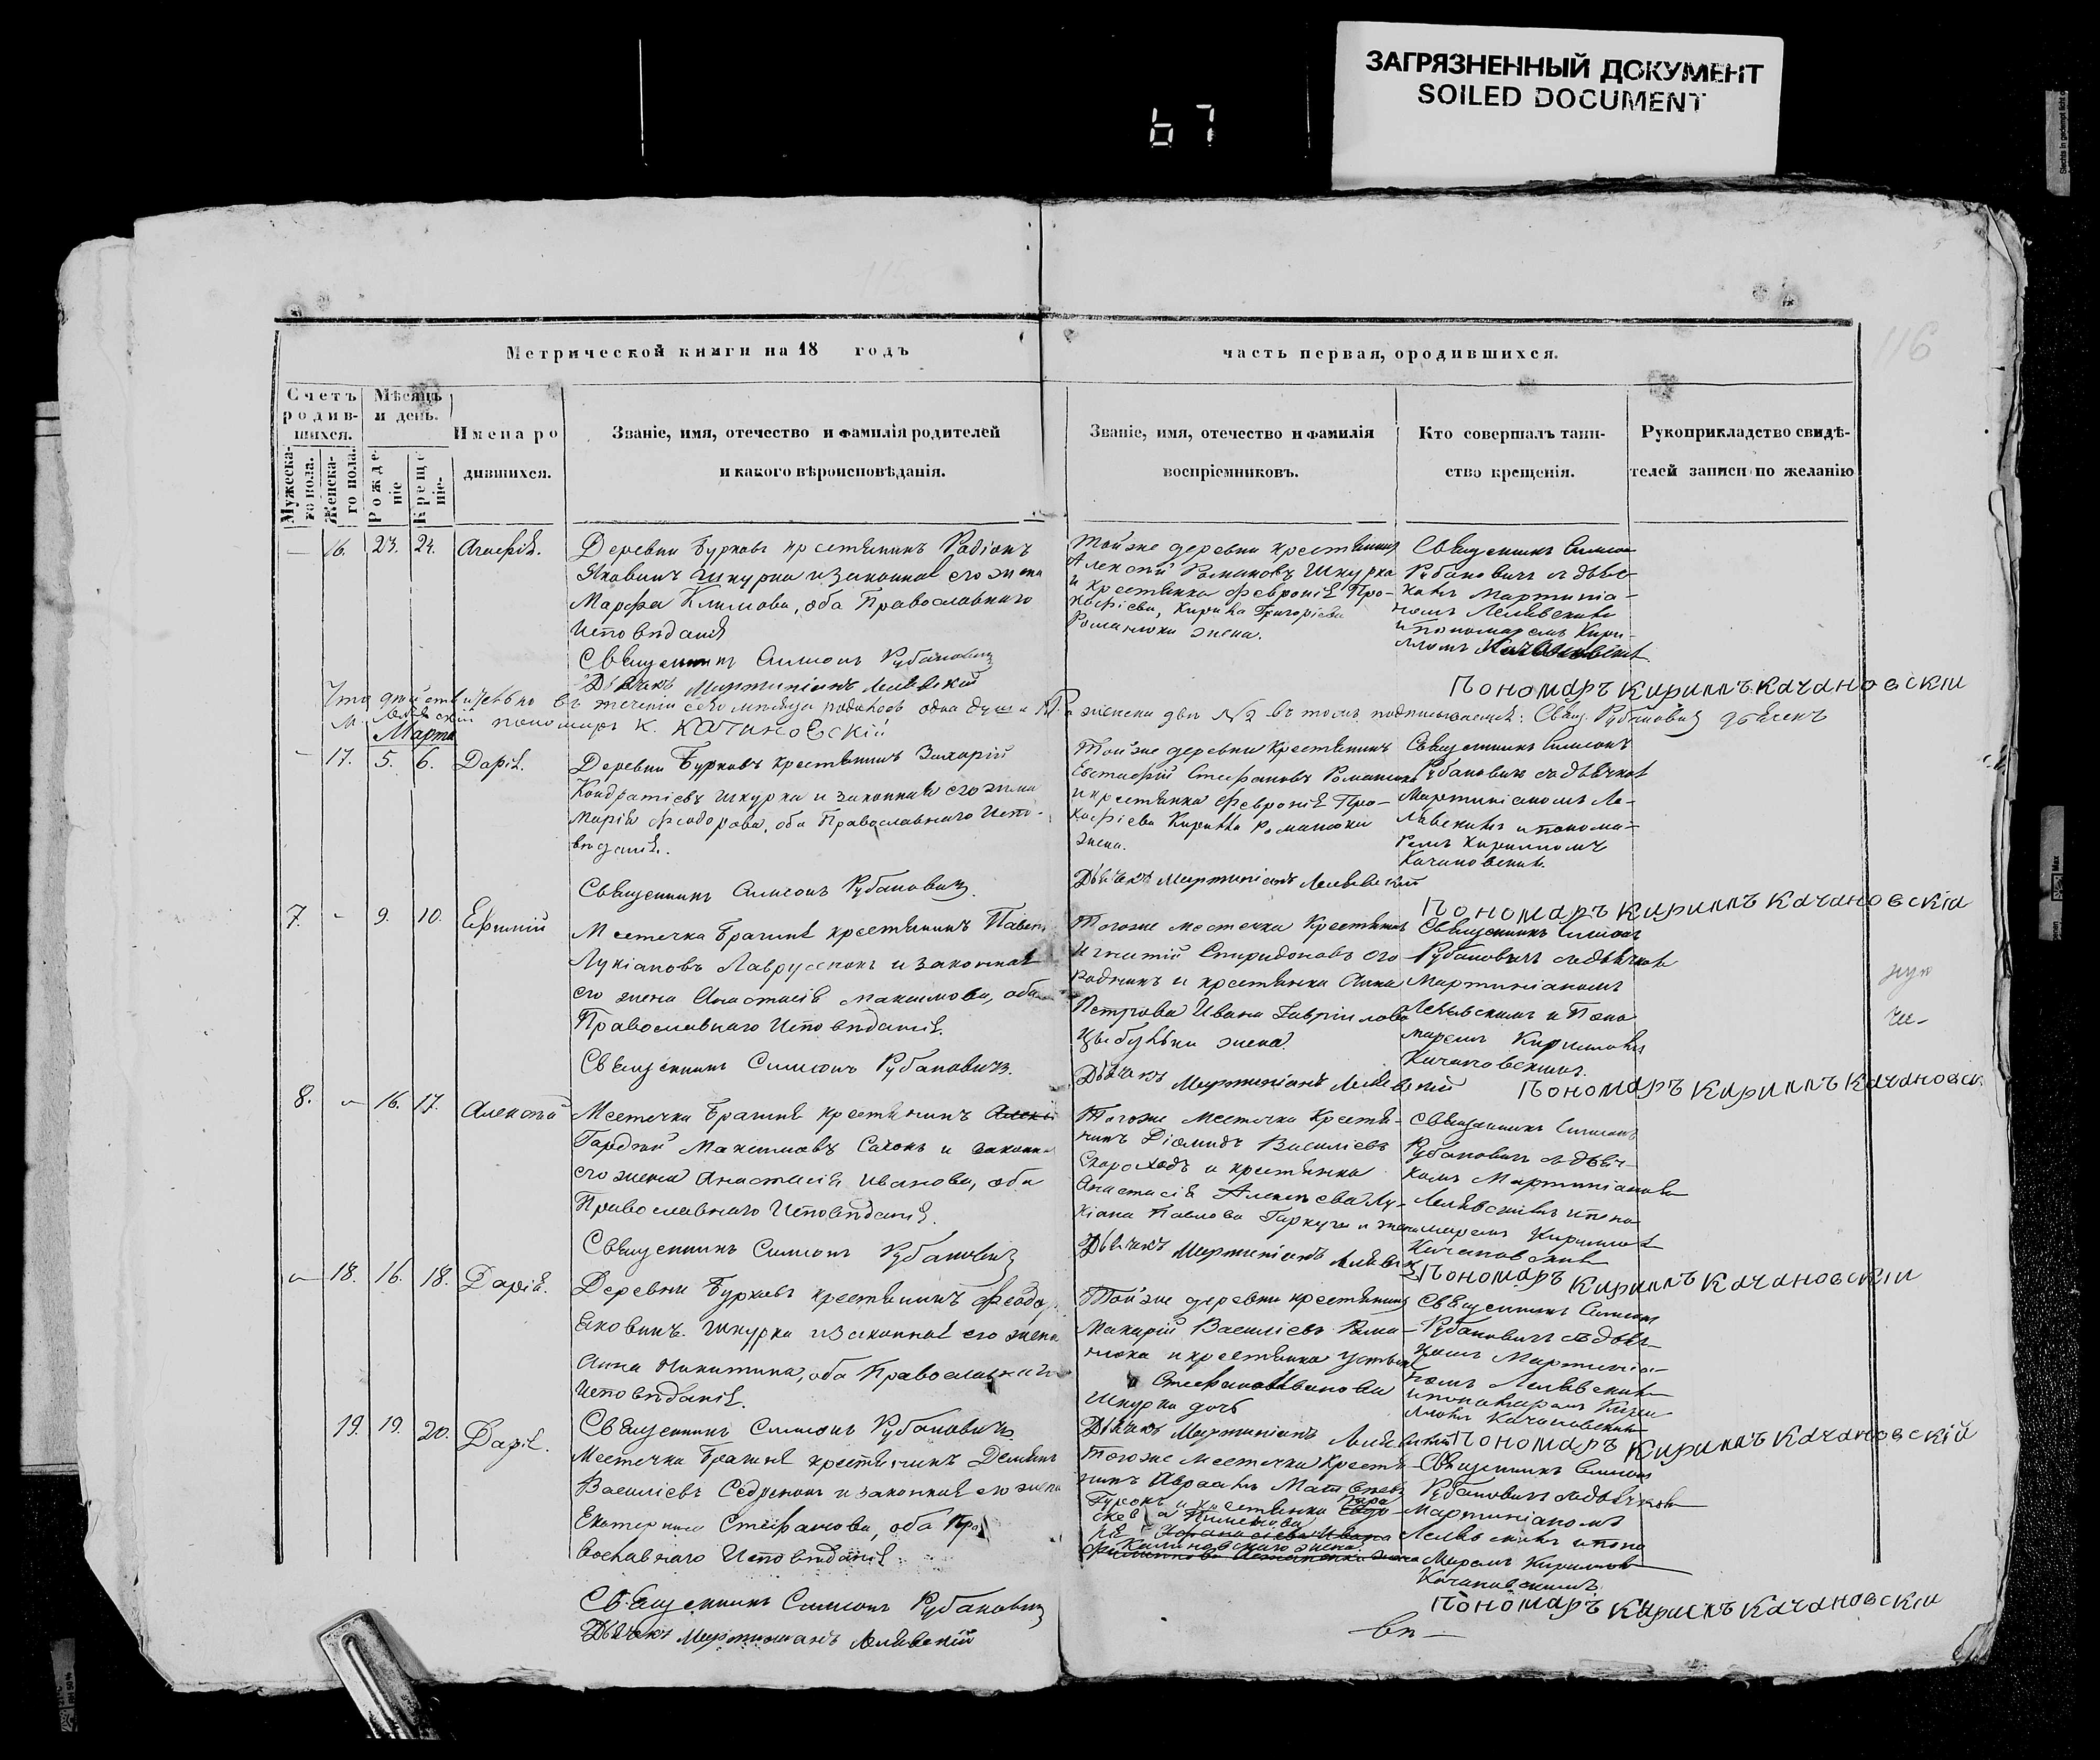 ЗАГРЯЗНЕННЫЙ ДОКУМЕНТ
SOILED DOCUMENT
67
116
Метрической книги на 18 годъ
часть первая, ородившихся.
Счетъ родив-шихся.
Мужеска-го пола.
Женска-го пола.
Мѣсяцъ и день.
Рожде-ніе
Креще-ніе.
Имена ро
дившихся.
Званіе, имя, отечество и фамилія родителей
и какого вѣроисповѣданія.
Званіе, имя, отечество и фамилія
воспріемниковъ.
Кто совершалъ таин-
ство крещенія.
Рукоприкладство свидѣ-
телей записи по желанію
— 16. 23. 24. Агафія.
Деревни Бурковъ крестьянинъ Родіонъ
Яковинъ Шкурка и законная его жена
Марфа Климова, оба Православнаго
Исповѣданія
Священникъ Симеонъ Рубановичъ
Дьячекъ Мартиніанъ Лелявскій
Тойже деревни крестьянинъ
Алексѣй Романовъ Шкурка
и крестьянка Февронія Про-
кофіева, Кирика Григоріева
Романюки жена.
Священникъ Симеонъ
Рубановичъ съ дьяч-
комъ Мартиніа-
номъ Лелявскимъ
и пономаремъ Кири-
ломъ Качановскимъ
Пономаръ Кириллъ Качановскій
Что дѣйствительно въ теченіи сего мѣсяца
пономаръ К. Качановскій
Марта
— 17. 5. 6. Дарія.
Деревни Бурковъ крестьянинъ Захарій
Кондратіевъ Шкурка и законная его жена
Марія Феодорова, оба Православнаго Испо-
вѣданія.
Священникъ Симеонъ Рубановичъ.
Тойже деревни крестьянинъ
Евстафій Стефановъ Романюка
и крестьянка Февронія Про-
кофіева Кирика Романюки
жена.
Дьячекъ Мартиніанъ Лелявскій
Священникъ Симеонъ
Рубановичъ съ дьячкомъ
Мартиніаномъ Ле-
лявскимъ и понома-
ремъ Кирилломъ
Качановскимъ.
Пономаръ Кириллъ Качановскій
7. — 9. 10. Ефимій
Местечка Брагиня крестьянинъ Павелъ
Лукіановъ Лаврусенокъ и законная
его жена Анастасія Максимова, оба
Православнаго Исповѣданія.
Священникъ Симеонъ Рубановичъ.
Тогоже местечка Крестьянинъ
Игнатій Спиридоновъ Ого-
родникъ и крестьянка Анна
Петрова Ивана Гавріилова
Цыбульки жена.
Дьячекъ Мартиніанъ Лелявскій
Священникъ Симеонъ
Рубановичъ съ дьячкомъ
Мартиніаномъ
Лелявскимъ и Поно
маремъ Кирилломъ
Качановскимъ.
Пономаръ Кириллъ Качановск
8. — 16. 17. Алексѣй
Местечка Брагиня крестьянинъ
Гордѣй Максимовъ Сахонъ и законная
его жена Анастасія Иванова, оба
Православнаго Исповѣданія.
Священникъ Симеонъ Рубановичъ
Тогоже Местечка Крестья-
нинъ Діомидъ Василіевъ
Скороходъ и крестьянка
Анастасія Алексѣева Лу-
кіана Павлова Гаркуши жена
Дьячекъ Мартиніанъ Лелявск
Священникъ Симеонъ
Рубановичъ съ дьяч-
комъ Мартиніаномъ
Лелявскимъ и поно
маремъ Кирилломъ
Качановскимъ
Пономаръ Кириллъ Качановскій
— 18. 16. 18. Дарія.
Деревни Бурковъ крестьянинъ Феодоръ
Яковинъ Шкурка и законная его жена
Анна Никитина, оба Православнаго
Исповѣданія.
Священникъ Симеонъ Рубановичъ
Тойже деревни крестьянинъ
Макарій Василіевъ Рома-
нюка и крестьянка
Шкурка дочь
Дьячекъ Мартиніанъ Лелявскій
Священникъ Симеонъ
Рубановичъ съ дьяч-
комъ Мартиніа-
номъ Лелявскимъ
и пономаремъ Кири
ломъ Качановскимъ
Пономаръ Кириллъ Качановскій
19. 19. 20. Дарія.
Местечка Брагиня крестьянинъ Деміанъ
Василіевъ и законная его жена
Екатерина Стефанова, оба Пра
вославнаго Исповѣданія.
Священникъ Симеонъ Рубановичъ
Дьячекъ Мартиніанъ Лелявскій
Тогоже местечка Крестья-
нинъ Авраамъ Матвѣевъ
и крестьянка Пара
скева Пименова
Калиновскаго жена
Священникъ Симеонъ
Рубановичъ съ дьячкомъ
Мартиніаномъ
Лелявскимъ и поно
маремъ Кирилломъ
Качановскимъ
Пономаръ Кириллъ Качановскій